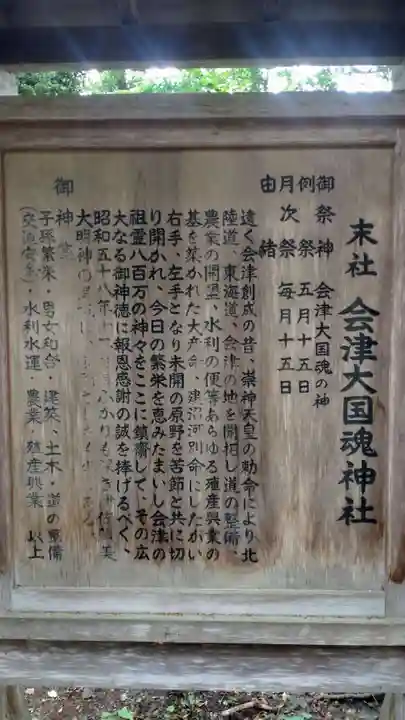 末社 会津大国魂神社
御祭神 会津大国魂の神
例祭 五月十五日
月次祭 毎月十五日
由緒
遠く会津創成の昔、崇神天皇の勅命により北
陸道、東海道、会津の地を開拓し道の整備、
農業の開墾、水利の便等あらゆる殖産興業の
基を築かれた大彦命、建沼河別命にしたがい
右手、左手となり未開の原野を苦節と共に切
り開かれ、今日の繁栄を恵みたまいし会津の
祖霊八百万の神々をここに鎮齋して、その広
大なる御神徳に報恩感謝の誠を捧げるべく、
昭和五十八年
大明神の
御神
子孫繁栄・男女和合・建築、土木・道の整備
(交通安全)・水利水運・農業、殖産興業 以上